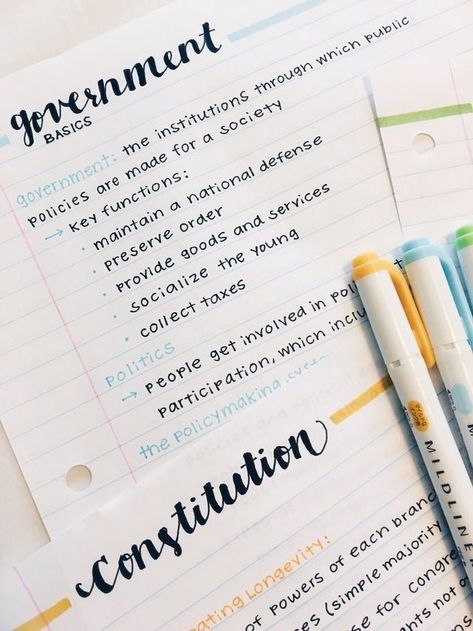 government
BASICS
government: the institutions through which public
policies are made for a society
→ key functions:
· maintain a national defense
· preserve order
· provide goods and services
· socialize the young
· collect taxes
politics
→ people get involved in
participation, which
the policymaking
Constitution
Longevity:
of powers of each
(simple majority
for
not
MILDLINE